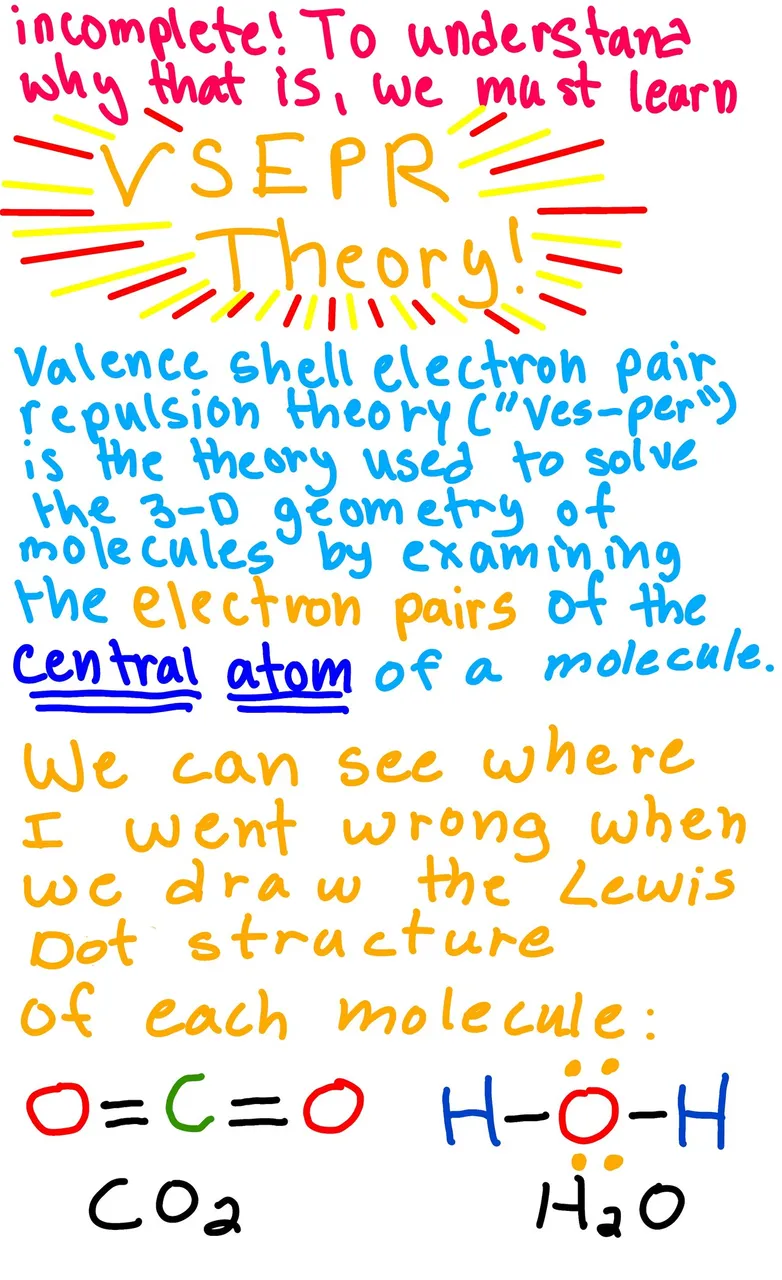 incomplete! To understand
why that is, we must learn
VSEPR
Theory!
Valence shell electron pair
repulsion theory ("Ves-per")
is the theory used to solve
the 3-D geometry of
molecules by examining
the electron pairs of the
central atom of a molecule.
We can see where
I went wrong when
we draw the Lewis
Dot structure
of each molecule:
O=C=O H-O-H
CO2 H2O